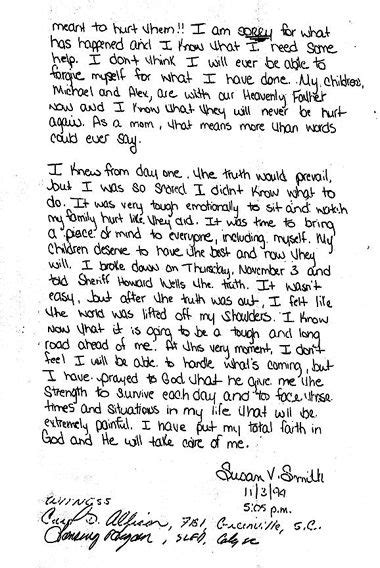 meant to hurt them!! I am sorry for what
has happened and I know that I need some
help. I don't think I will ever be able to
forgive myself for what I have done. My children,
Michael and Alex, are with our Heavenly Father
now and I know that they will never be hurt
again. As a mom, that means more than words
could ever say.
I knew from day one, the truth would prevail,
but I was so scared I didn't know what to
do. It was very tough emotionally to sit and watch
my family hurt like they did. It was time to bring
a piece of mind to everyone, including myself. My
children deserve to have the best and now they
will. I broke down on Thursday, November 3 and
told Sheriff Howard Wells the truth. It wasn't
easy, but after the truth was out, I felt like
the world was lifted off my shoulders. I know
now that it is going to be a tough and long
road ahead of me. At this very moment, I don't
feel I will be able to handle what's coming, but
I have prayed to God that he give me the
strength to survive each day and to face those
times and situations in my life that will be
extremely painful. I have put my total faith in
God and He will take care of me.
Susan V. Smith
11/3/94
5:05 p.m.
WITNESS
D. Allison, FBI, Greenville, S.C.
Logan, SLED,